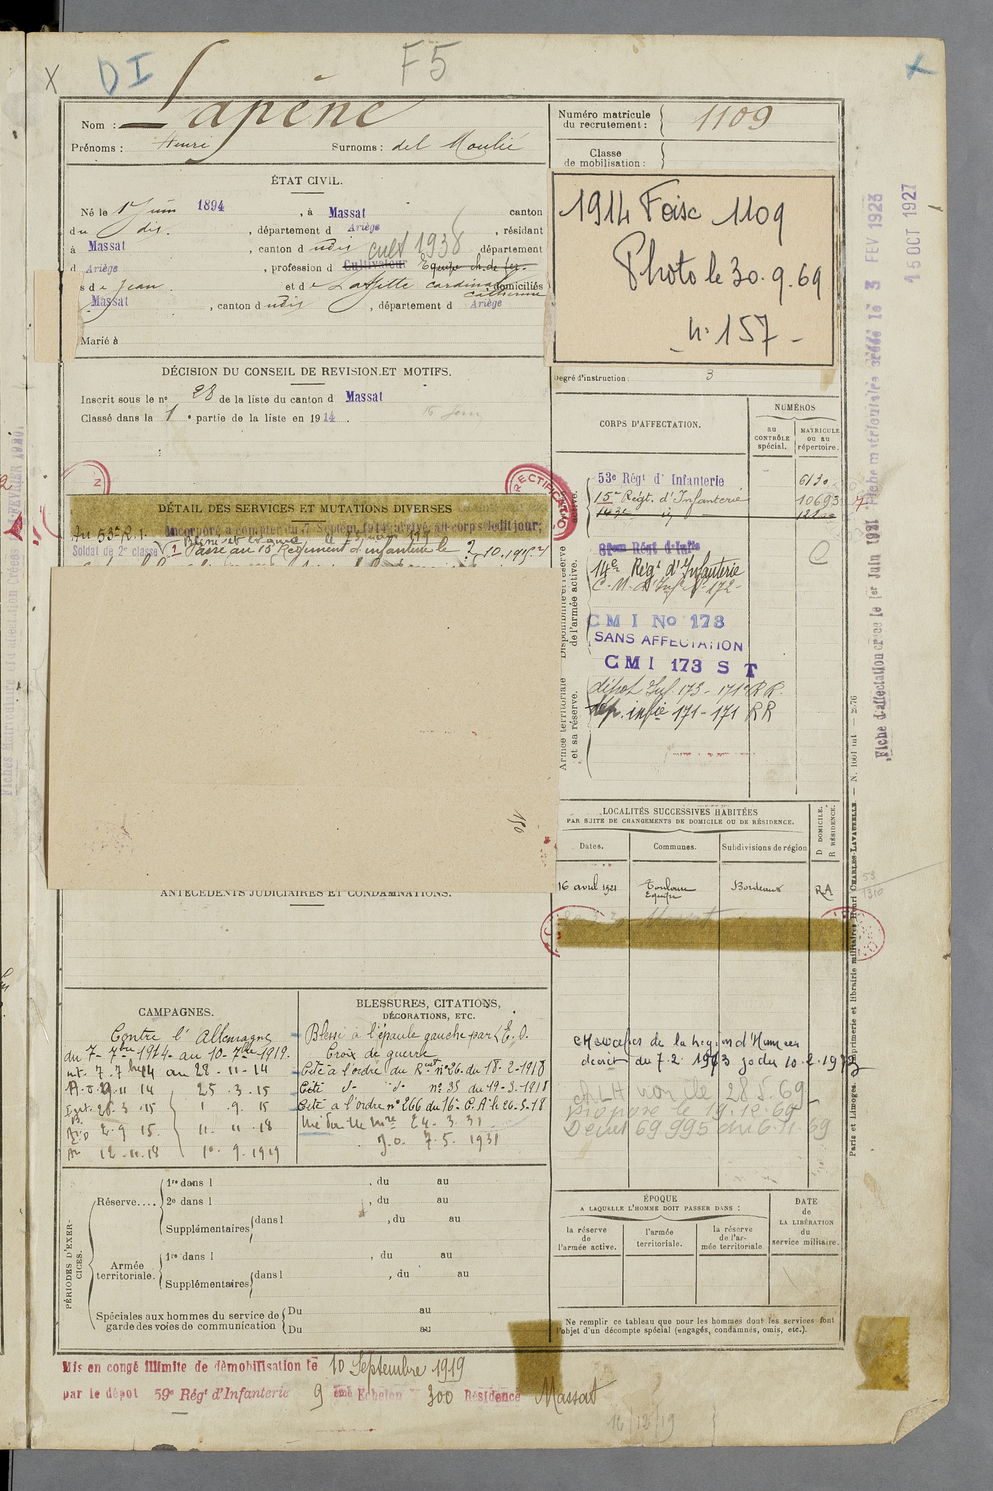 DI
F5
Nom : Lapène
Prénoms : Henri Surnoms : del Moulié
Numéro matricule du recrutement : 1109
Classe de mobilisation :
ÉTAT CIVIL.
Né le 1er Juin 1894, à Massat canton
du dit, département d Ariège, résidant
à Massat, canton d udit département
cult 1938
d Ariège, profession d Cultivateur Equipe ch. de fer.
fils de Jean et de Lafille cardine Catherine domiciliés
Massat, canton d udit, département d Ariège
Marié à
1914 Foix 1109
Photo le 30.9.69
n. 157 -
Degré d'instruction : 3
DÉCISION DU CONSEIL DE REVISION ET MOTIFS.
Inscrit sous le no 28 de la liste du canton d Massat
Classé dans la 1e partie de la liste en 1914.
DÉTAIL DES SERVICES ET MUTATIONS DIVERSES
Au 53e R.I. Incorporé à compter du 7 Septem. 1914, arrivé au corps ledit jour;
Soldat de 2e classe
Passé au 15e Régiment d'infanterie le 2.10.1915
RECTIFICATION
CORPS D'AFFECTATION.
NUMÉROS
au CONTRÔLE spécial.
MATRICULE ou au répertoire.
53e Régt d'Infanterie 6130
15e Régt. d'Infanterie 10693
143e
Disponibilité et réserve de l'armée active.
Régt d'Infie
14e Régt d'Infanterie
C. M. d'Infie No 172
CMI No 178
SANS AFFECTATION
CMI 173 ST
Armée territoriale et sa réserve.
dépôt Inf 173 - 171e RR.
dép. infie 171 - 171 RR
150
LOCALITÉS SUCCESSIVES HABITÉES
PAR SUITE DE CHANGEMENTS DE DOMICILE OU DE RÉSIDENCE.
Dates.
Communes.
Subdivisions de région
D DOMICILE.
R RÉSIDENCE.
16 avril 1921 Toulouse Equipe Bordeaux RA
Massat
ANTÉCÉDENTS JUDICIAIRES ET CONDAMNATIONS.
CAMPAGNES.
Contre l'Allemagne
du 7 - 7bre 1914 - au 10 - 7bre 1919.
int. 7.7bre 14 au 28 - 11 - 14
11 14 25 . 3 . 15
3 . 15 1 . 9 . 15
2 . 9 15. 11 . 11 . 18
12 . 11 . 18 10 . 9 . 1919
BLESSURES, CITATIONS, DÉCORATIONS, ETC.
Blessé à l'épaule gauche par E.O.
Croix de guerre
Cité à l'ordre du Rent no 26. du 18-2-1918
Cité -d- -d- no 35 du 19-3-1918
Cité à l'ordre no 266 du 16e C.A. le 26-5-18
24 - 3 . 31
J.O. 7.5.1931
Chevalier de la Légion d'Honneur
décret du 7.2
28.5.69
Proposé le 19.12.69
Décret 69.995 du 6.11.69
PÉRIODES D'EXERCICES.
Réserve....
1re dans l , du au
2e dans l , du au
Supplémentaires dans l , du au
Armée territoriale.
1re dans l , du au
Supplémentaires dans l , du au
Spéciales aux hommes du service de garde des voies de communication
Du au
Du au
ÉPOQUE
A LAQUELLE L'HOMME DOIT PASSER DANS :
la réserve de l'armée active.
l'armée territoriale.
la réserve de l'armée territoriale
DATE de LA LIBÉRATION du service militaire.
Ne remplir ce tableau que pour les hommes dont les services font l'objet d'un décompte spécial (engagés, condamnés, omis, etc.).
Mis en congé illimité de démobilisation le 10 Septembre 1919
par le dépôt 59e Régt d'Infanterie 9 ème Echelon 300 Résidence Massat
16/12/19
3 FEV 1923
15 OCT 1927
Fiche d'affectation créée le 1er Juin 1931
Paris et Limoges. Imprimerie et librairie militaires Henri CHARLES-LAVAUZELLE